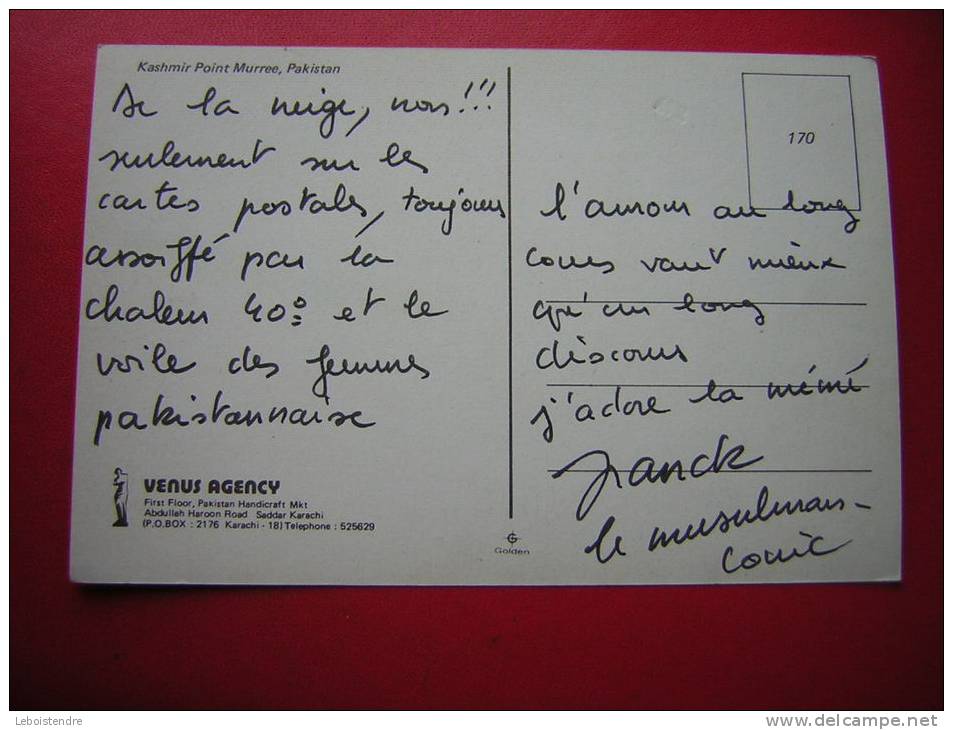 Kashmir Point Murree, Pakistan
De la neige, non!!!
seulement sur les
cartes postales, toujours
assoiffé par la
chaleur 40° et le
voile des femmes
pakistannaise
VENUS AGENCY
First Floor, Pakistan Handicraft Mkt
Abdullah Haroon Road Saddar Karachi
(P.O.BOX : 2176 Karachi - 18) Telephone : 525629
G
Golden
170
l'amour au long
cours vaut mieux
qu'un long
discours
j'adore la mémé
Franck
le musulman-
Leboistendre
www.delcampe.net